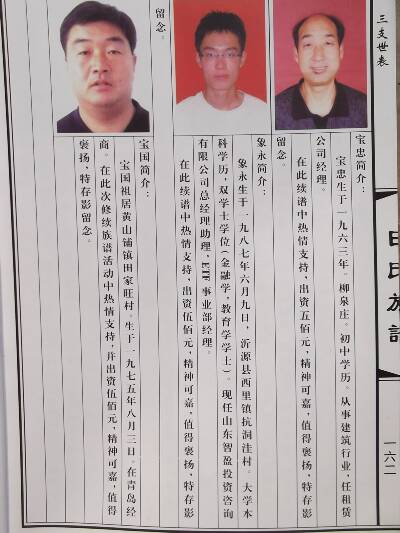 三支世表
田氏族谱
一六二
宝忠简介：
宝忠生于一九六三年。柳泉庄。初中学历。从事建筑行业，任租赁
公司经理。
在此续谱中热情支持，出资五佰元，精神可嘉，值得褒扬，特存影
留念。
象永简介：
象永生于一九八七年六月九日，沂源县西里镇抗洞洼村。大学本
科学历，双学士学位(金融学，教育学学士)。现任山东智盈投资咨询
有限公司总经理助理，ETF事业部经理。
在此续谱中热情支持，出资伍佰元，精神可嘉，值得褒扬，特存影
留念。
宝国简介：
宝国祖居黄山铺镇田家旺村。生于一九七五年八月三日。在青岛经
商。在此次修续族谱活动中热情支持，并出资伍佰元，精神可嘉，值得
褒扬，特存影留念。